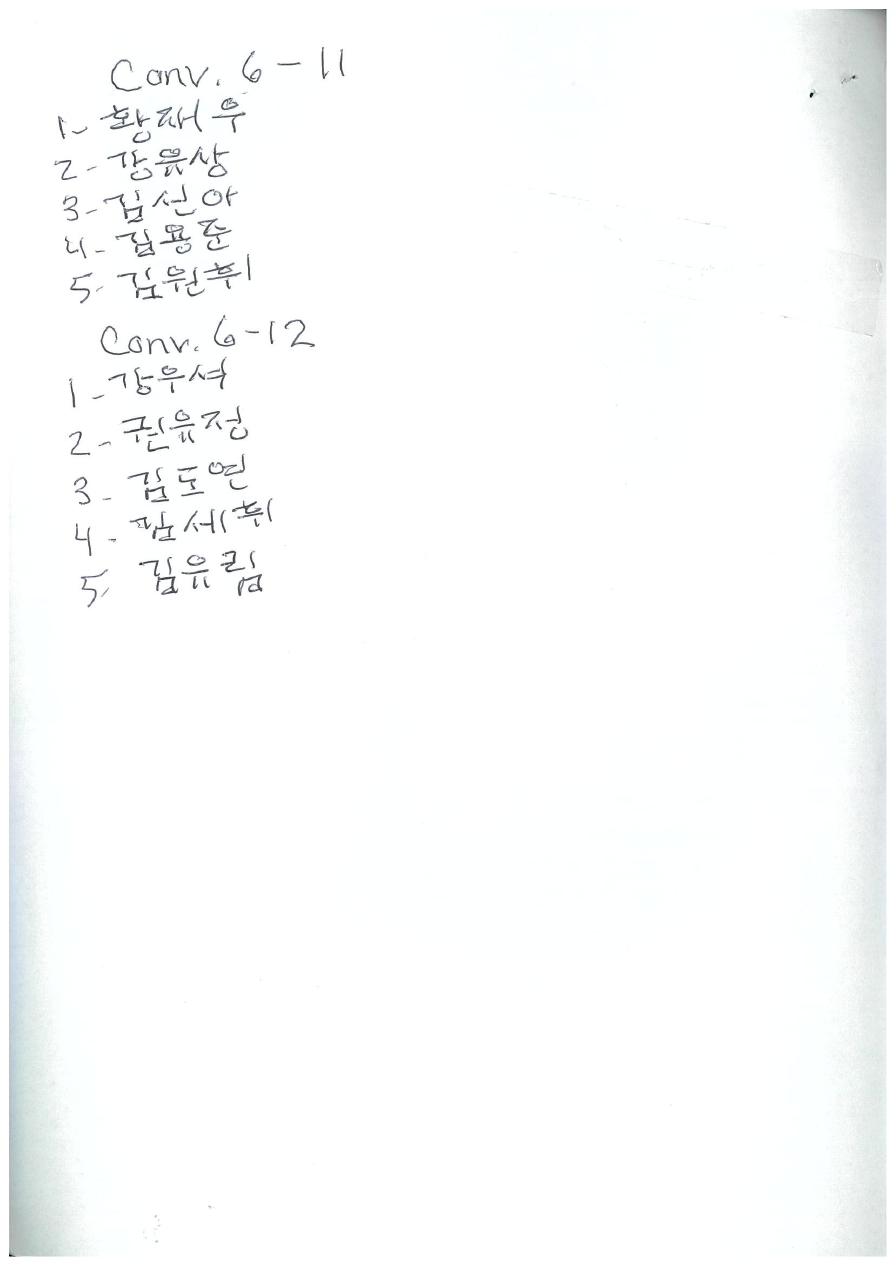 Conv. 6-11
1- 황재우
2- 강윤상
3- 김선아
4- 김용준
5- 김원휘
Conv. 6-12
1- 강우석
2- 권유정
3- 김도연
4- 김세휘
5- 김유림